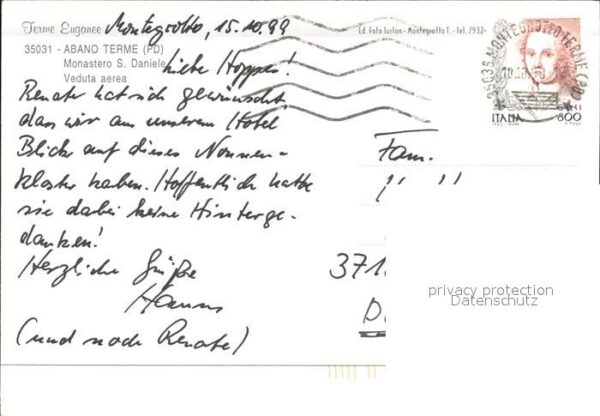 Terme Euganee
35031 - ABANO TERME (PD)
Monastero S. Daniele
Veduta aerea
Ed. Foto Turlon - Montegrotto T. - Tel. 7932
Montegrotto, 15.10.99
Liebe Hoppes!
Renate hat sich gewünscht,
dass wir aus unserem Hotel
Blick auf dieses Nonnen-
kloster haben. Hoffentlich hatte
sie dabei keine Hinterge-
danken!
Herzliche Grüße
Hanns
(und noch Renate)
35036 MONTEGROTTO TERME (PD)
ITALIA 800
Fam.
371
D
privacy protection
Datenschutz